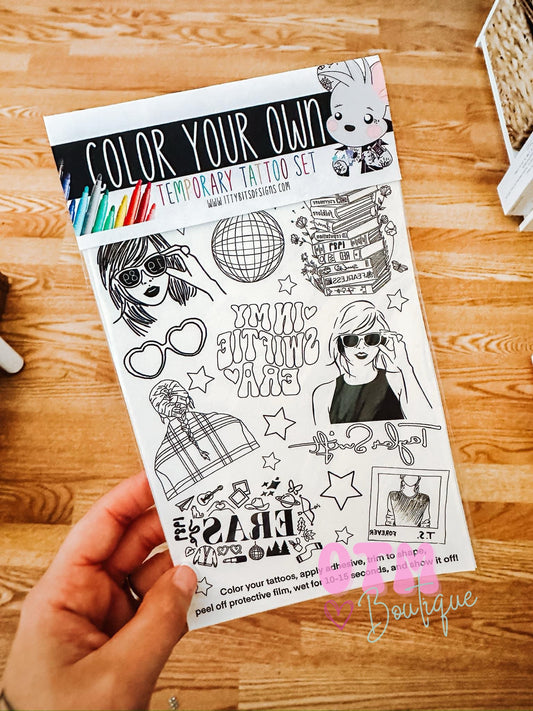 COLOR YOUR OWN
TEMPORARY TATTOO SET
WWW.ITTYBITSDESIGNS.COM
1989
RED
FEARLESS
IN MY
SWIFTIE
ERA
Taylor Swift
T.S.
FOREVER
1989
ERAS
Color your tattoos, apply adhesive, trim to shape,
peel off protective film, wet for 10-15 seconds, and show it off!
OTM
Boutique